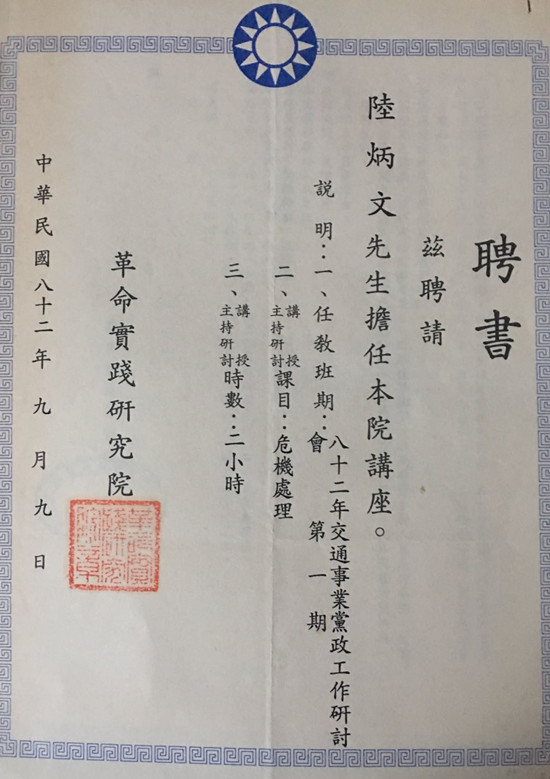 聘書
茲聘請
陸炳文先生擔任本院講座。
説明：一、任教班期：八十二年交通事業黨政工作研討會 第一期
二、講授主持研討課目：危機處理
三、講授主持研討時數：二小時
革命實踐研究院
中華民國八十二年九月九日